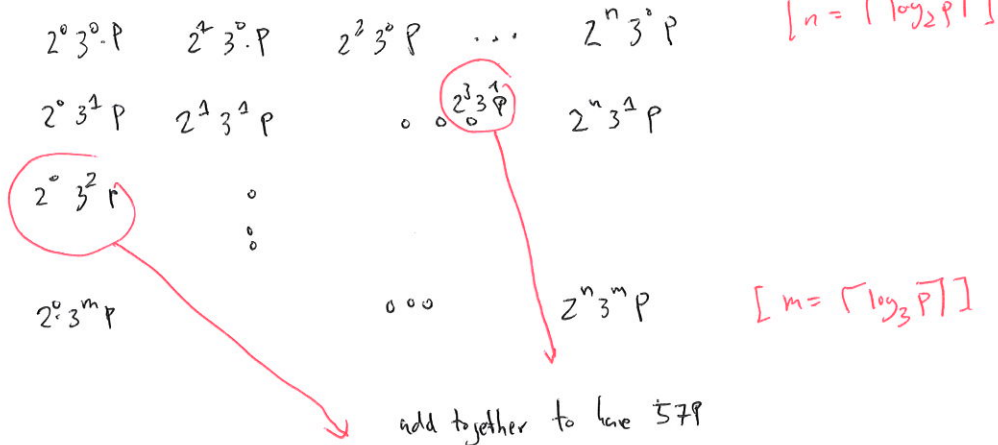 2⁰3⁰·P 2¹3⁰·P 2²3⁰P ... 2ⁿ3⁰P [n = ⌈log₂P⌉]
2⁰3¹P 2¹3¹P ... 2³3¹P 2ⁿ3¹P
2⁰3²P
2⁰·3ᵐP ... 2ⁿ3ᵐP [m = ⌈log₃P⌉]
add together to have 57P